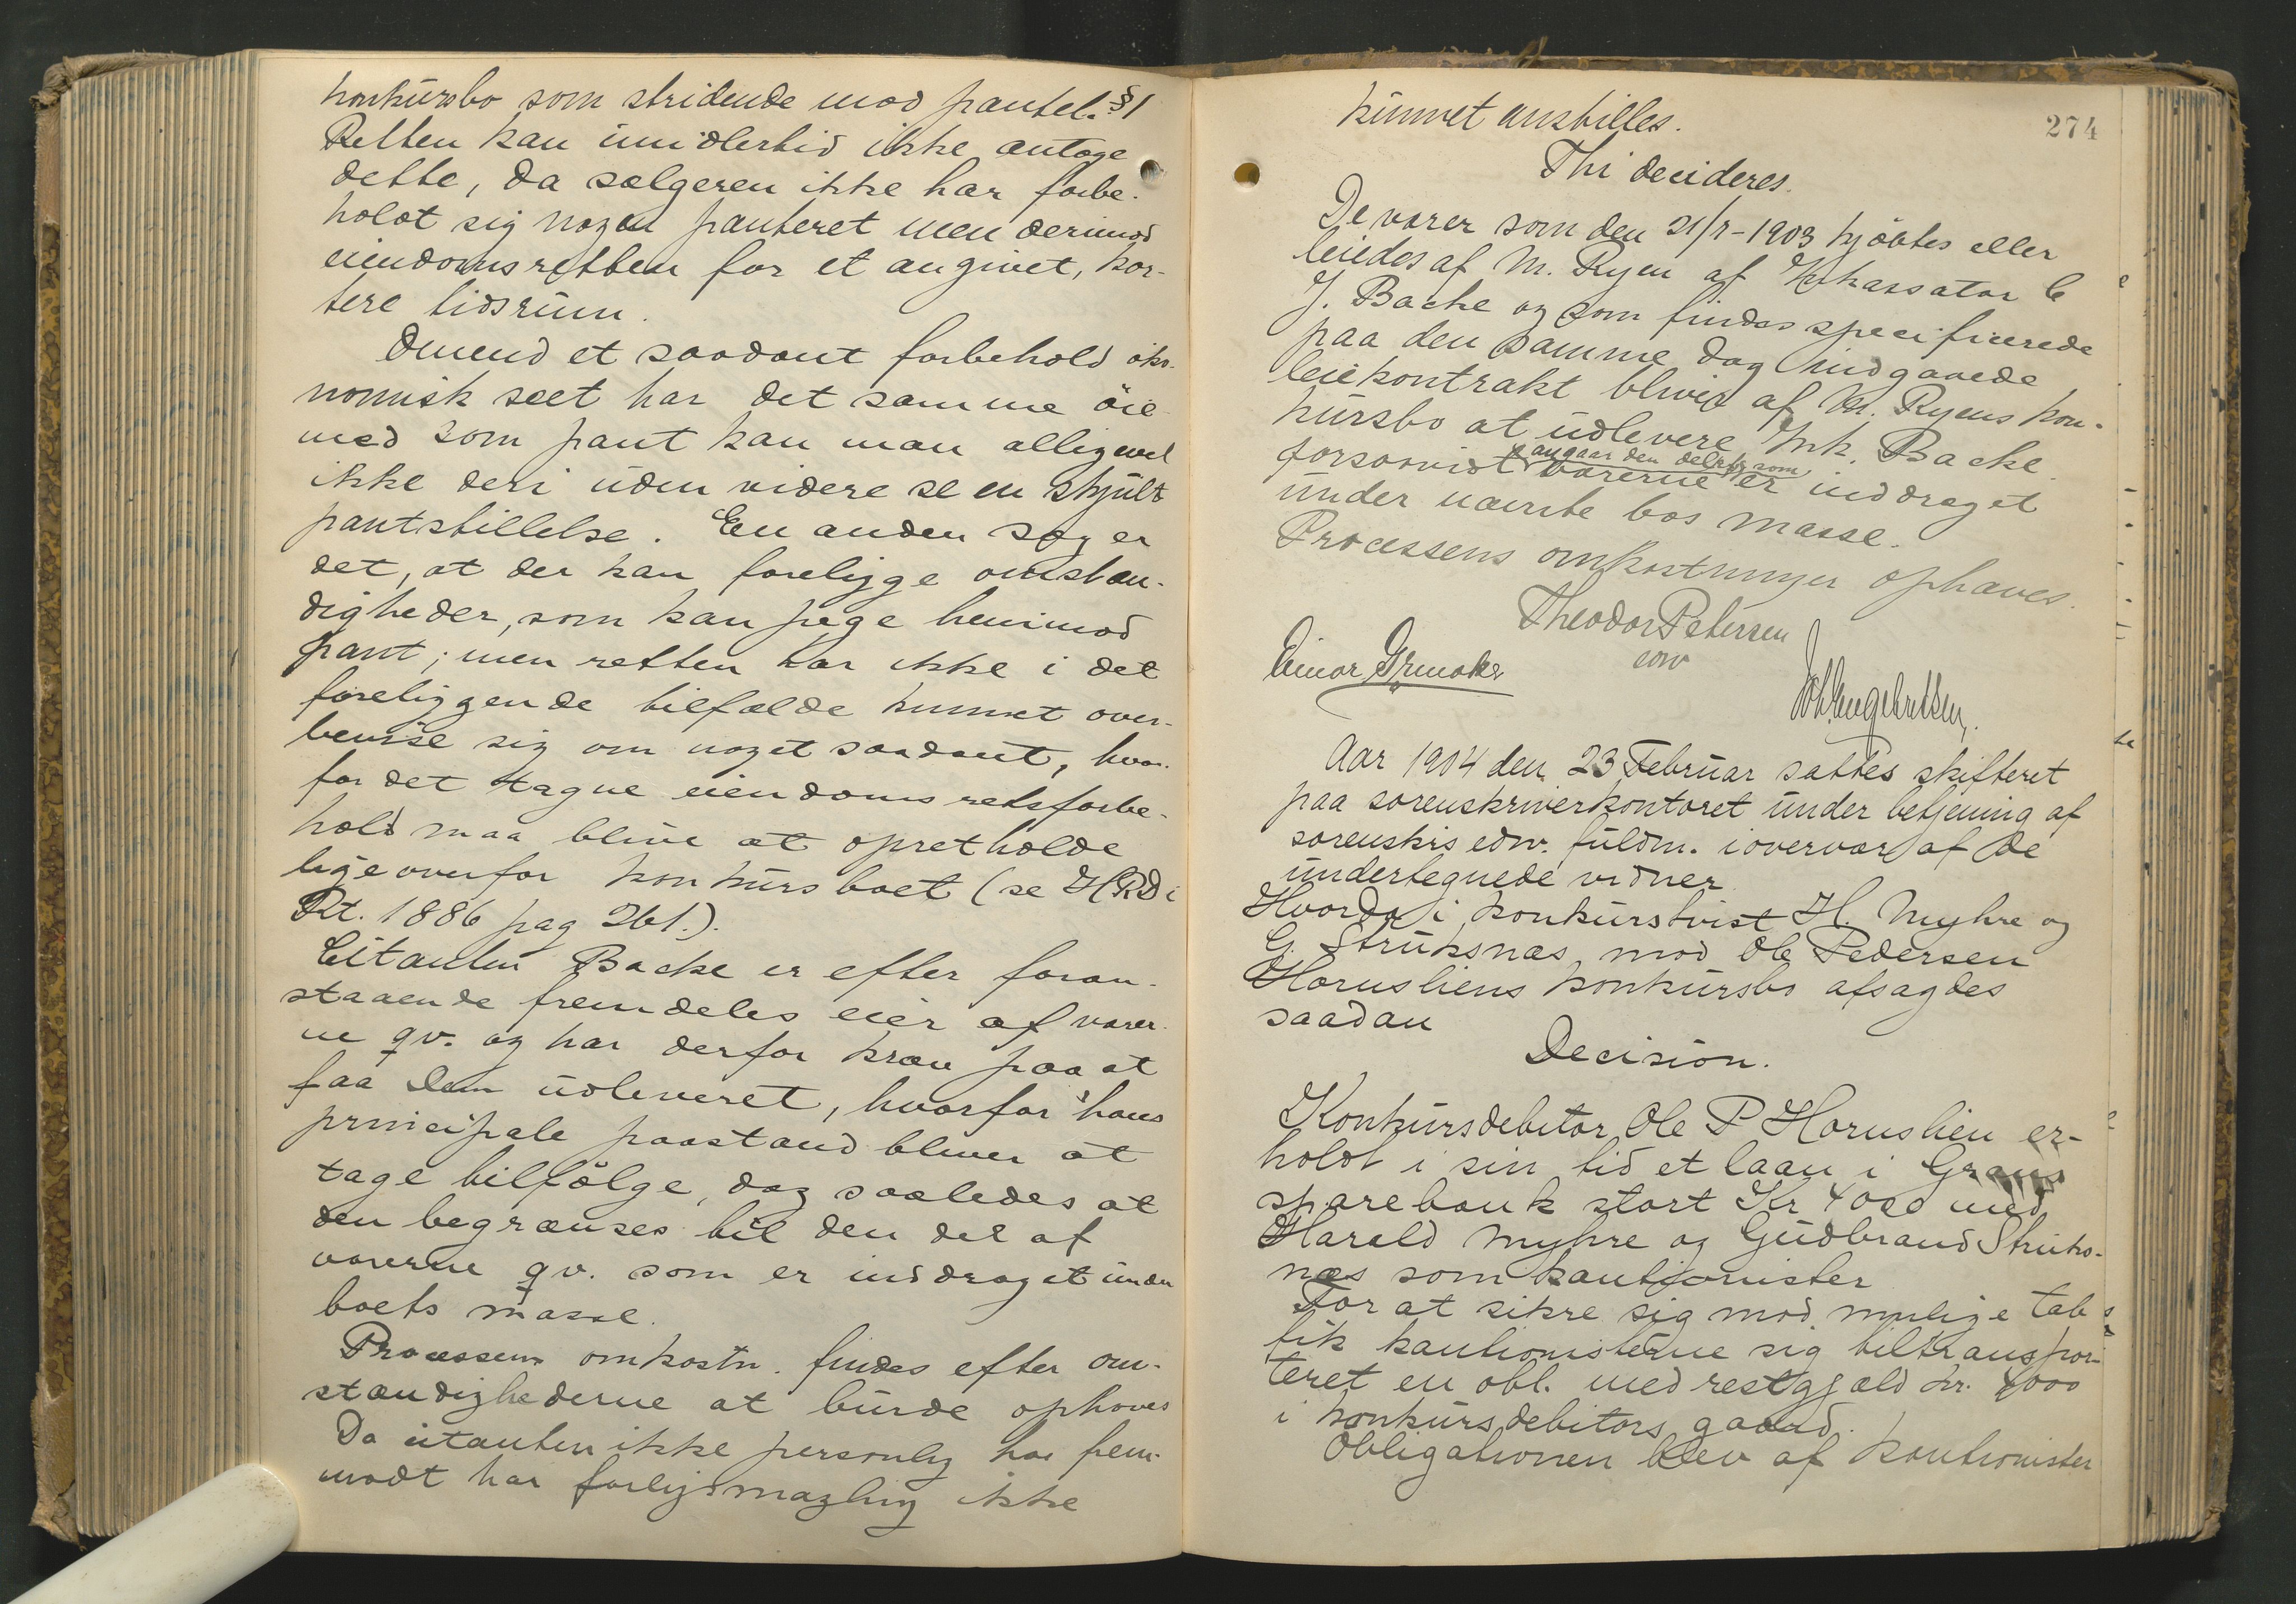 konkursbo som stridende mod pantel. §1
Retten kan imidlertid ikke antage
dette, da sælgeren ikke har forbe-
holdt sig nogen panteret men derimod
eiendomsretten for et angivet, kor-
tere tidsrum.
Omend et saadant forbehold øko-
nomisk seet har det samme øie-
med som pant kan man alligevel
ikke deri uden videre se en skjult
pantstillelse. En anden sag er
det, at der kan foreligge omstæn-
digheder, som kan pege henimod
pant; men retten har ikke i det
foreliggende tilfælde kunnet over-
bevise sig om noget saadant, hvor-
for det tagne eiendomsretsforbe-
hold maa blive at opretholde
ligeoverfor konkursboet (se HRD i
Rt. 1886 pag 261.).
Citanten Backe er efter foran-
staaende fremdeles eier af varer-
ne qv. og har derfor krav paa at
faa dem udleveret, hvorfor hans
principale paastand bliver at
tage tilfølge, dog saaledes at
den begrænses til den del af
varerne qv. som er inddraget under
boets masse.
Processens omkostn. findes efter om-
stændighederne at burde ophæves
Da citanten ikke personlig har frem-
mødt har forligsmægling ikke
274
kunnet anstilles.
Thi decideres.
De varer som den 21/7-1903 kjøbtes eller
leiedes af M. Ryen af Inkassator C
J. Backe og som findes specificerede
paa den samme dag indgaaede
leiekontrakt bliver af M. Ryens kon-
kursbo at udlevere Ink. Backe
angaar den del af som
forsaavidt varerne er inddraget
under nævnte bos masse.
Processens omkostninger ophæves.
Theodor Petersen
sow
Einar Grinaker
Joh. Engebretsen.
Aar 1904 den 23 Februar sattes skifteret
paa sorenskriverkontoret under betjening af
sorenskrs edsv. fuldm. i overvær af de
undertegnede vidner
Hvorda i konkurstvist H. Myhre og
G. Struksnæs mod Ole Pedersen
Hornsliens konkursbo afsagdes
saadan
Decision.
Konkursdebitor Ole P Hornslien er-
holdt i sin tid et laan i Grans
sparebank stort Kr 4000 med
Harald Myhre og Gudbrand Struks-
næs som kautionister
For at sikre sig mod mulige tab
fik kautionisterne sig tiltranspor-
teret en obl. med restgjæld kr. 4000
i konkursdebitors gaard.
Obligationen blev af kautionister